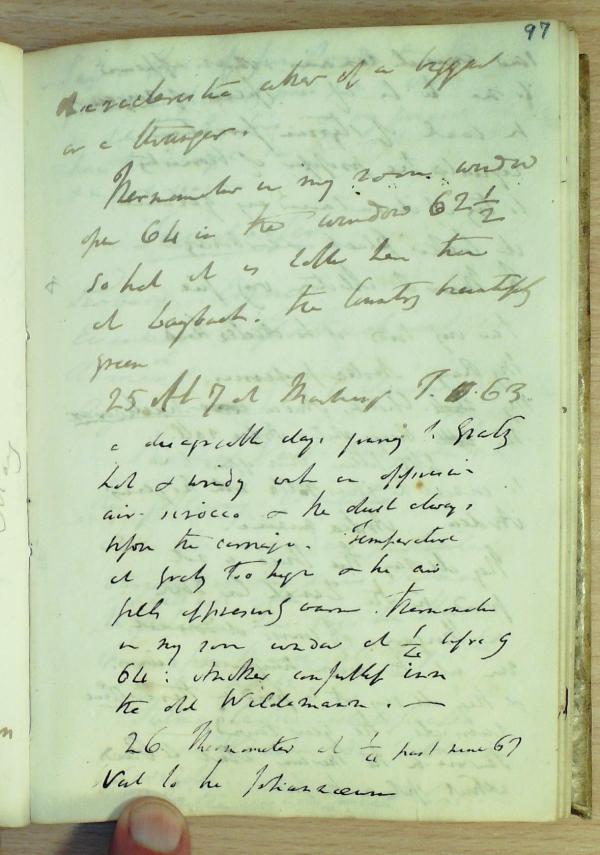 97
characteristic either of a beggar
or a stranger.
Thermometer in my room window
open 64 in the window 62 1/2
So that it is colder here than
at Laybach. The Country beautifully
green
25 At 7 at Marburg T. 63
a disagreeable day, journey to Gratz
hot & windy with an oppressive
air sirocco & the dust always
upon the carriage. Temperature
at Gratz too high & the air
feels oppressively warm. Thermometer
in my room window at 1/4 before 9
64: Another comfortable inn
the old Wildemann. —
26. Thermometer at 1/4 past nine 67
Visit to the Johannaeum